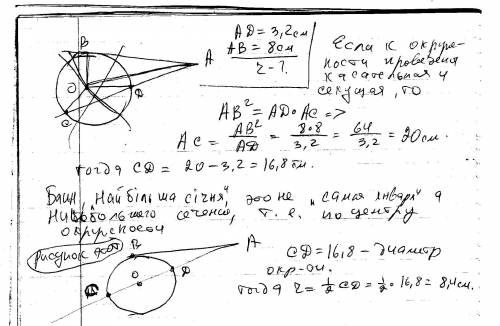 AD = 3,2 см
AB = 8 см
r - ?
Если к окруж-
ности проведена
касательная и
секущая, то
B
A
O
D
C
AB² = AD · AC =>
AC = AB²/AD = 8·8/3,2 = 64/3,2 = 20 см.
тогда CD = 20 - 3,2 = 16,8 см.
"Найбільша січня", это не "самая января" а
сечение, т. е. по центру
окружности
рисунок
B
A
O
D
CD = 16,8 - диаметр
окр-ти.
тогда r = ½ CD = ½ · 16,8 = 8,4 см.